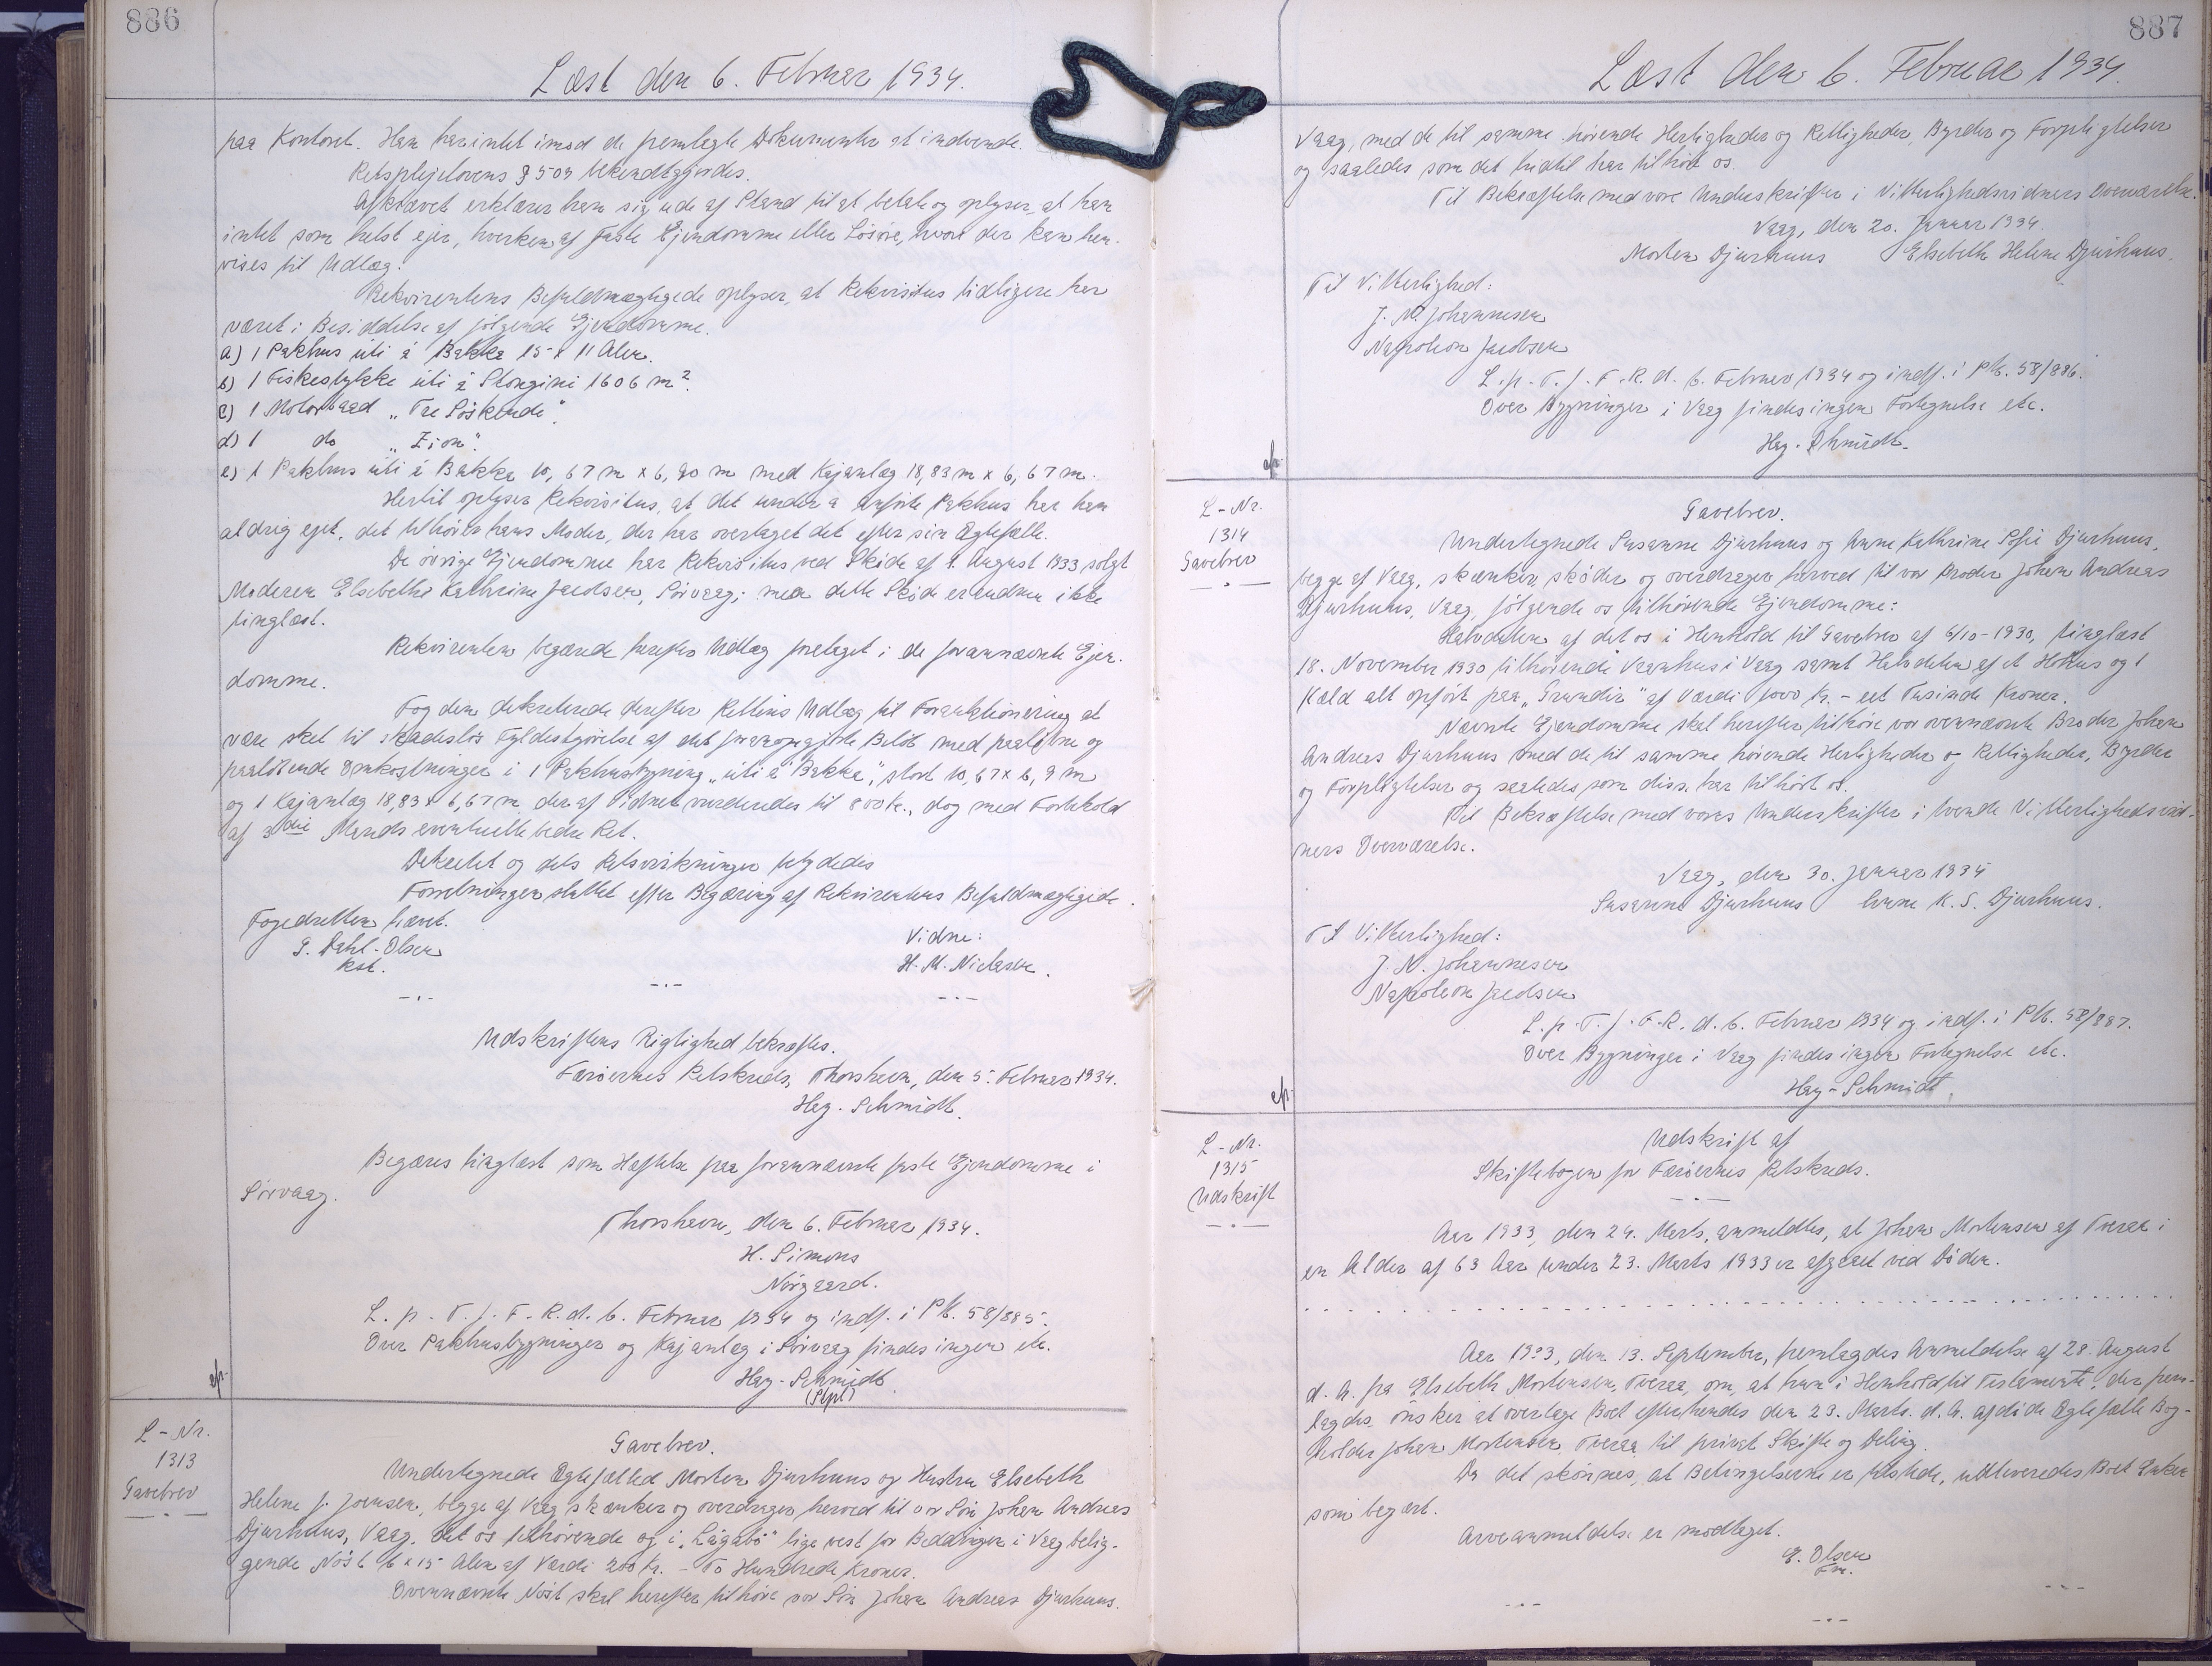 886
Læst den 6. Februar 1934.
paa Kontoret. Han har intet imod de fremlagte Dokumenter at indvende.
Retsplejelovens § 504 bekendtgjordes.
Afkrævet erklærer han sig ude af Stand til at betale og oplyser, at han
intet som helst ejer, hverken af faste Ejendomme eller Løsøre, hvori der kan hen-
vises til Udlæg.
Rekvirentens Befuldmægtigede oplyser, at Rekvisitus tidligere har
været i Besiddelse af følgende Ejendomme.
a) 1 Pakhus úti á Bakka 15 x 11 Alen.
b) 1 Fiskestykke úti á Stongini 1606 m².
c) 1 Motorbaad „Tre Söskende".
d) 1 do „Zion".
e) 1 Pakhus úti á Bakka 10,67 m x 6,90 m med Kajanlæg 18,83 m x 6,67 m.
Hertil oplyser Rekvisitus, at det under a anførte Pakhus har han
aldrig ejet, det tilhører hans Moder, der har overtaget det efter sin Ægtefælle.
De øvrige Ejendomme har Rekvisitus ved Skøde af 1. August 1933 solgt
Moderen Elsebeths Kathrine Jacobsen, Sørvaag; men dette Skøde er endnu ikke
tinglæst.
Rekvirenten begærede herefter Udlæg foretaget i de forannævnte Ejen-
domme.
Fogden dekreterede derefter Rettens Udlæg til Forauktionering at
være sket til skadesløs Fyldestgørelse af det foranopgjorte Beløb med paaløbne og
paaløbende Omkostninger i 1 Pakhusbygning „úti á Bakka", stort 10,67 x 6,9 m
og 1 Kajanlæg 18,83 x 6,67 m der af Vidnet vurderedes til 800 kr., dog med Forbehold
af 3die Mands eventuelle bedre Ret.
Dekretet og dets Retsvirkninger betydedes
Forretningen sluttet efter Begæring af Rekvirentens Befuldmægtigede.
Fogedretten hævet.
G. Dahl-Olsen
kst.
Vidne:
H. M. Niclasen.
Udskriftens Rigtighed bekræftes.
Færöernes Retskreds, Thorshavn, den 5. Februar 1934.
Hey-Schmidt.
Begæres tinglæst som Hæftelse paa forannævnte faste Ejendomme i
Sörvaag.
Thorshavn, den 6. Februar 1934.
H. Simons
Nörgaard.
L. p. T. f. F. R. d. 6. Februar 1934 og indf. i Pb. 58/885.
Over Pakhusbygninger og Kajanlæg i Sörvaag findes ingen etc.
Hey-Schmidt.
L-Nr.
1313
Gavebrev
Gavebrev.
Undertegnede Ægtefælled Morten Djurhuus og Hustru Elsebeth
Helene f. Joensen, begge af Vaag skænker og overdrager herved til vor Søn Johan Andreas
Djurhuus, Vaag, det os tilhørende og i „Lágabø" lige vest for Beddingen i Vaag belig-
gende Nøst 6 x 15 Alen af Værdi 200 Kr. - To Hundrede Kroner.
Ovennævnte Nøst skal herefter tilhøre vor Søn Johan Andreas Djurhuus.
887
Læst den 6. Februar 1934.
Vaag, med de til samme hørende Herligheder og Rettigheder, Byrder og Forpligtelser
og saaledes som det hidtil har tilhørt os.
Til Bekræftelse med vore Underskrifter i Vitterlighedsvidners Overværelse.
Vaag, den 20. Januar 1934.
Morten Djurhuus Elsebeth Helene Djurhuus.
Til Vitterlighed:
J. N. Johannesen
Napoleon Jacobsen
L. p. T. f. F. R. d. 6. Februar 1934 og indf. i Pb. 58/886.
Over Bygninger i Vaag findes ingen Fortegnelse etc.
Hey-Schmidt.
L-Nr.
1314
Gavebrev
Gavebrev.
Undertegnede Susanne Djurhuus og Anne Kathrine Sofie Djurhuus,
begge af Vaag, skænker, skøder og overdrager herved til vor Broder Johan Andreas
Djurhuus, Vaag, følgende os tilhørende Ejendomme:
Halvdelen af det os i Henhold til Gavebrev af 6/10-1930, tinglæst
18. November 1930 tilhørende Vaanhus i Vaag samt Halvdelen af et Høhus og 1
Kæld alt opført paa „Grundin" af Værdi 1000 Kr. - eet Tusinde Kroner.
Nævnte Ejendomme skal herefter tilhøre vor ovennævnte Broder Johan
Andreas Djurhuus med de til samme hørende Herligheder og Rettigheder, Byrder
og Forpligtelser og saaledes som disse har tilhørt os.
Til Bekræftelse med vores Underskrifter i tvende Vitterlighedsvid-
ners Overværelse.
Vaag, den 30. Januar 1934
Susanne Djurhuus Anne K. S. Djurhuus.
Til Vitterlighed:
J. N. Johannesen
Napoleon Jacobsen
L. p. T. f. F. R. d. 6. Februar 1934 og indf. i Pb. 58/887.
Over Bygninger i Vaag findes ingen Fortegnelse etc.
Hey-Schmidt.
L-Nr.
1315
Udskrift
Udskrift af
Skiftebogen for Færöernes Retskreds.
Aar 1933, den 24. Marts, anmeldtes, at Johan Mortensen af Tveraa i
en Alder af 63 Aar under 23. Marts 1933 er afgaaet ved Døden.
Aar 1933, den 13. September, fremlagdes Anmeldelse af 28. August
d. A. fra Elsebeth Mortensen, Tveraa, om, at hun i Henhold til Testamente, der frem-
lagdes, ønsker at overtage Boet efter hendes den 23. Marts. d. A. afdøde Ægtefælle Bog-
holder Johan Mortensen, Tveraa til privat Skifte og Deling.
Da det skønnes, at Betingelserne er tilstede, udleveredes Boet Enken
som begært.
Arveanmeldelse er modtaget.
E. Olsen
Fm.